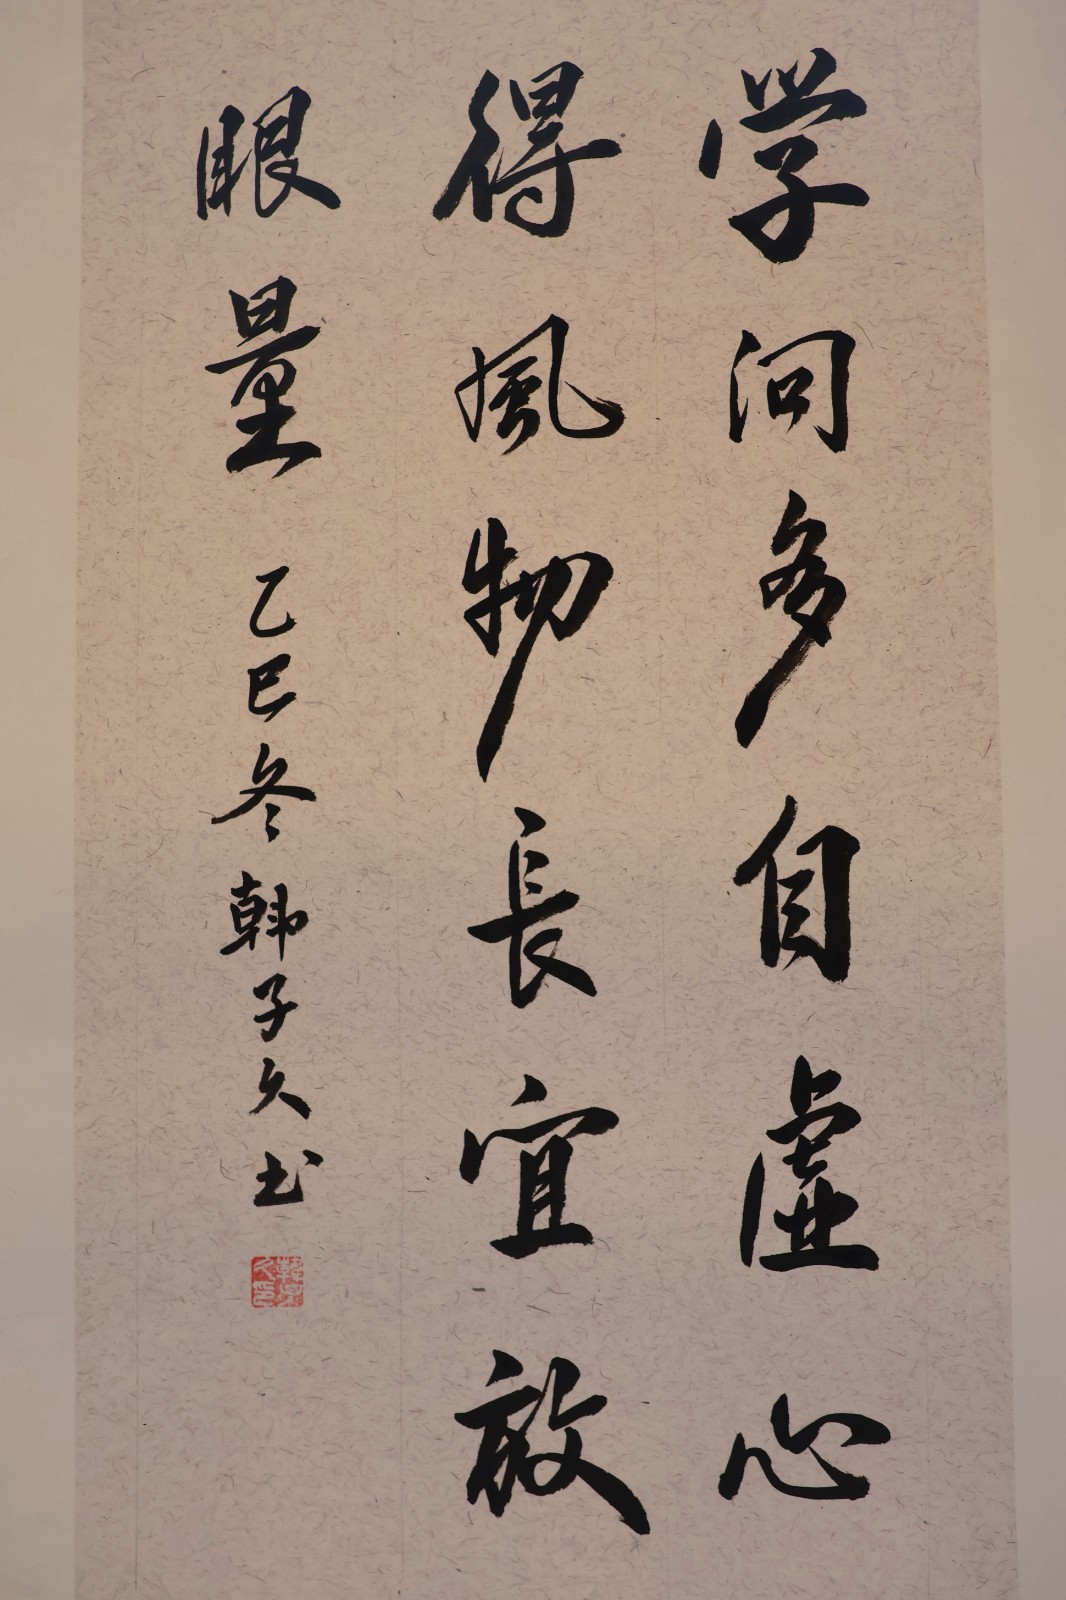 学问多自虚心
得风物長宜放
眼量
乙巳冬韩子久书